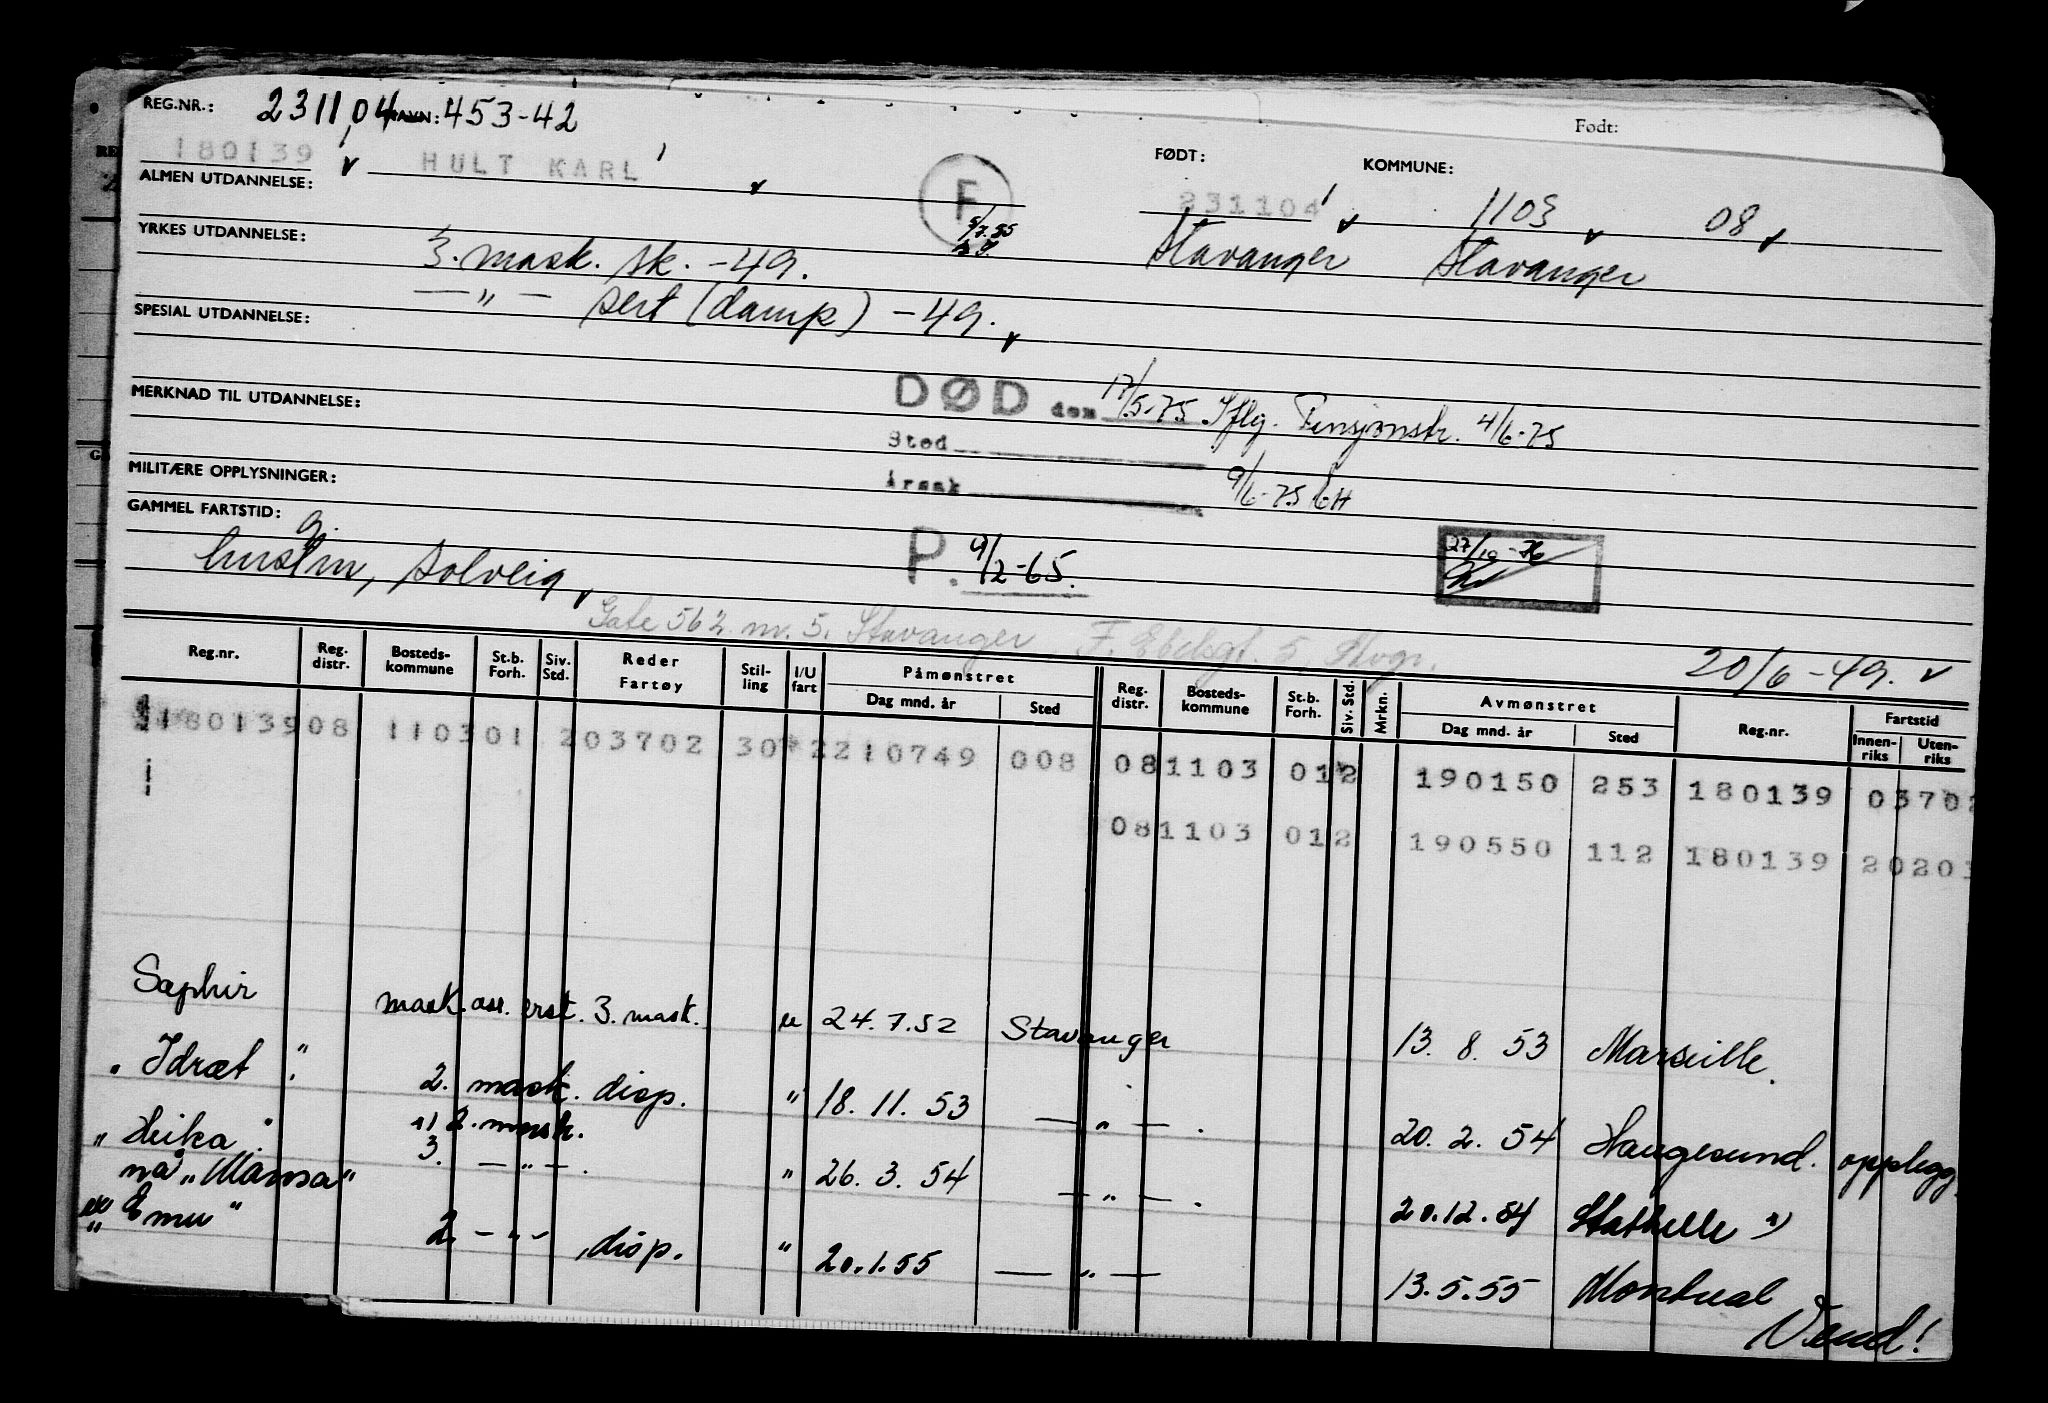 Født:
REG.NR.: 231104 NAVN: 453-42
180139 HULT KARL
FØDT: 231104 KOMMUNE: 1103 08
Stavanger Stavanger
ALMEN UTDANNELSE:
F
5/7.55
YRKES UTDANNELSE: 3. mask. sk. -49.
— " — sert (damp) -49.
SPESIAL UTDANNELSE:
MERKNAD TIL UTDANNELSE:
DØD den 17/5-75 Iflg. Pensjonstr. 4/6-75
Sted
Årsak 9/6-75 GH
MILITÆRE OPPLYSNINGER:
GAMMEL FARTSTID:
P. 9/2-65.
27/10-76
hustru, Solveig
Gate 562 nr. 5. Stavanger
20/6-49.
Reg.nr. Reg. distr. Bosteds-kommune St.b. Forh. Siv. Std. Reder Fartøy Stil-ling I/U fart Påmønstret Dag mnd. år Sted Reg. distr. Bosteds-kommune St.b. Forh. Siv. Std. Mrkn. Avmønstret Dag mnd. år Sted Reg.nr. Fartstid Innen-riks Uten-riks
18013908 110301 203702 30 2210749 008 081103 012 190150 253 180139 03702
081103 012 190550 112 180139 20203
Saphir mask. ass. erst. 3. mask. u 24.7.52 Stavanger 13. 8. 53 Marseille.
" Idræt " 2. mask. disp. " 18. 11. 53 — " — . 20. 2. 54 Haugesund. opplegg.
" Heika " x) 2. mask.
nå "Mansa" 3. — " — . " 26. 3. 54 — " — . 20.12.54 Stathelle x)
ex
" Emu " 2. — " — , disp. " 20.1.55 — " — 13.5.55 Montreal
Vend!